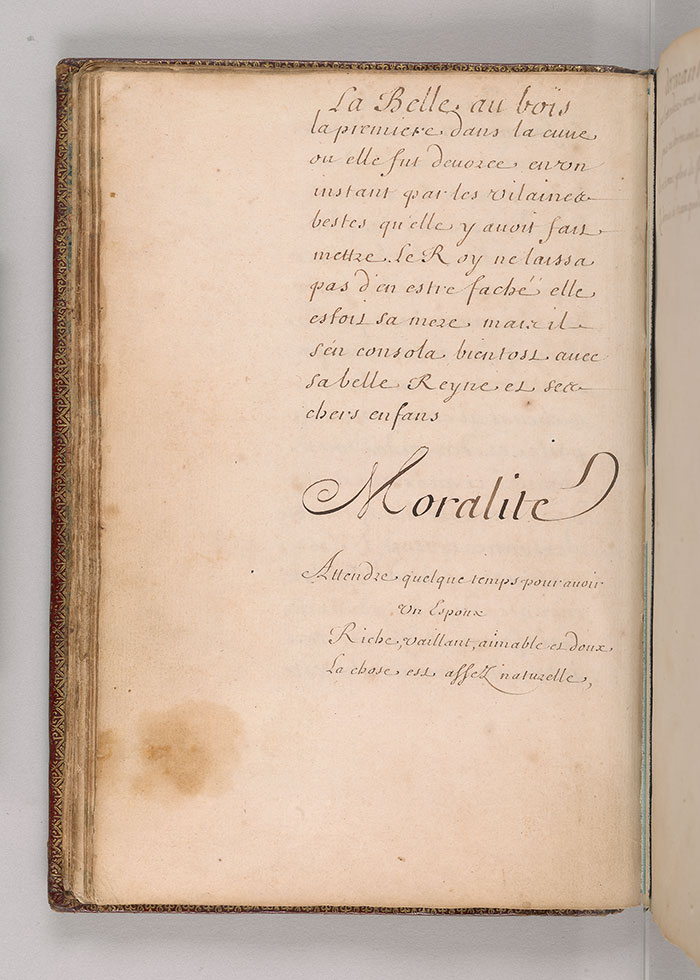 La Belle au boïs
la premiere dans la cuue
ou elle fut deuoree en vn
instant par les vilaines
bestes qu'elle y auoit fait
mettre. Le Roy ne laissa
pas d'en estre faché elle
estoit sa mere mais il
s'en consola bientost auec
sa belle Reyne et ses
chers enfans
Moralité
Attendre quelque temps pour auoir
Vn Espoux
Riche, vaillant, aimable et doux
La chose est assez naturelle,